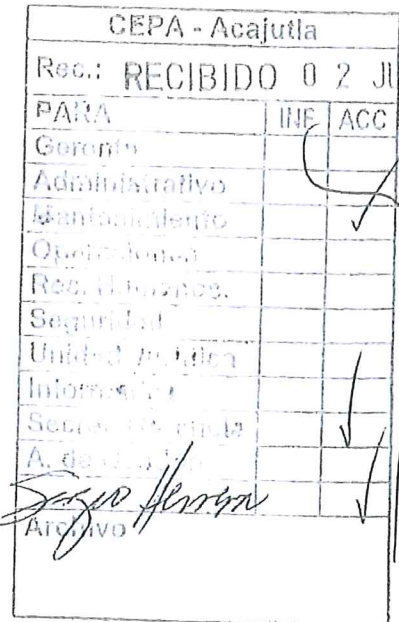 CEPA - Acajutla
Rec.: RECIBIDO 0 2 JU
PARA INF ACC
Gerente
Administrativo
Mantenimiento
Operaciones
Rec. Humanos.
Seguridad
Unidad
Informática
Secret.
A. de
Sergio Herrera
Archivo